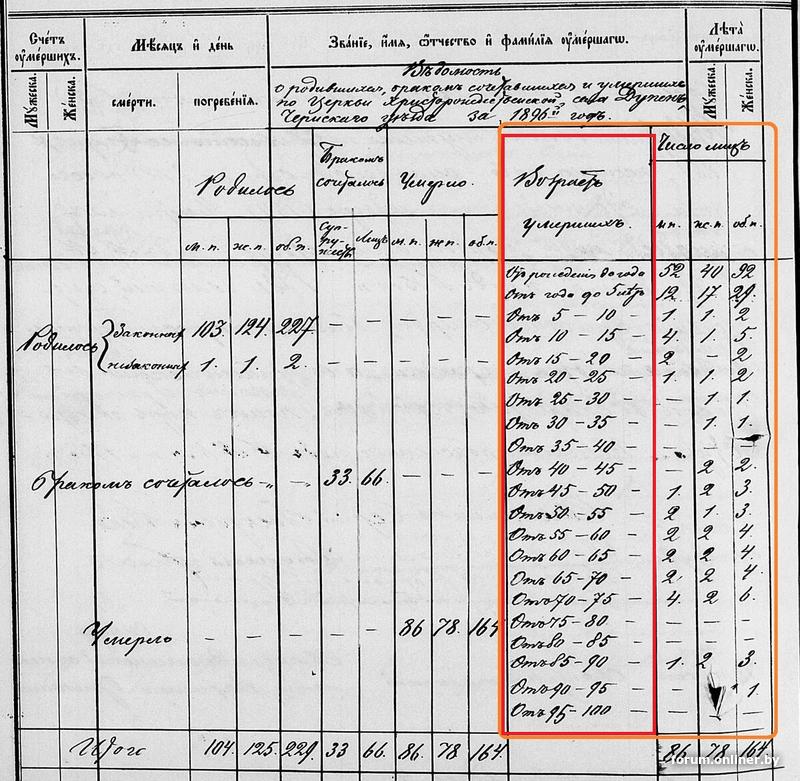 Счетъ оумершихъ.
Мужеска.
Женска.
Мѣсяцъ и день
смерти.
погребенія.
Званіе, имя, отчество и фамилія оумершагѡ.
Лѣта оумершагѡ.
Мужеска.
Женска.
Вѣдомость
о родившихся, бракомъ сочетавшихся и умершихъ
по церкви Христорождественской, села
уѣзда за 1896й годъ.
Родилось
Бракомъ сочеталось
Умерло.
Возрастъ умершихъ.
Число лицъ
м.п. ж.п. об.п. Суп-ру-жествъ Лицъ м.п. ж.п. об.п. м.п. ж.п. об.п.
Отъ рожденія до года 52 40 92
Отъ года до 5 лѣтъ 12. 17 29.
Отъ 5 – 10 – 1. 1. 2
Родилось законныхъ 103. 124. 227. – – – – –
Отъ 10 – 15 4. 1. 5.
Отъ 15 – 20 – 2 – 2
незаконныхъ 1. 1. 2. – – – – –
Отъ 20 – 25 – 1. 1. 2
Отъ 25 – 30 – 1. 1.
Отъ 30 – 35 – – 1. 1.
Отъ 35 – 40 – – –
Отъ 40 – 45 – – 2 2.
Бракомъ сочеталось – „ – „ – 33. 66. – – –
Отъ 45 – 50 – 1. 2 3.
Отъ 50 – 55 – 2 1. 3.
Отъ 55 – 60 – 2 2 4.
Отъ 60 – 65 – 2 2 4.
Отъ 65 – 70 – 2 2 4.
Отъ 70 – 75 – 4. 2 6.
Умерло – – – – – 86 78. 164
Отъ 75 – 80 – – – –
Отъ 80 – 85 – – –
Отъ 85 – 90 – 1. 2 3.
Отъ 90 – 95 – – 1.
Отъ 95 – 100 – – – –
Итого 104. 125. 229. 33 66. 86. 78 164. 86. 78. 164.
forum.onliner.by